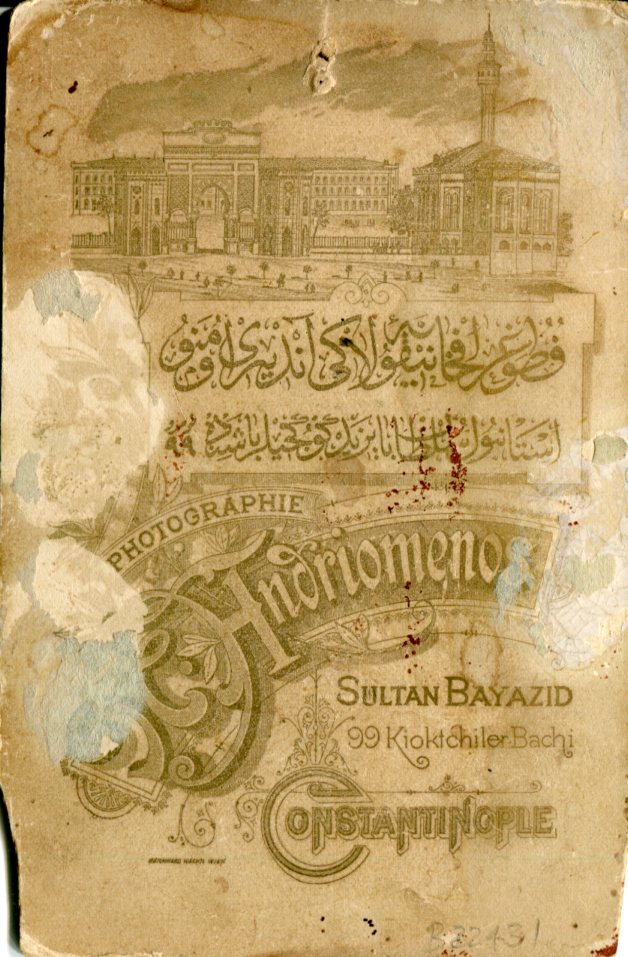 نیقولاکی آندریومنو
استانبول سلطان بایزید کوکجیلر باشنده ٩٩
PHOTOGRAPHIE
Andriomeno
SULTAN BAYAZID
99 Kioktchiler-Bachi
CONSTANTINOPLE
BERNHARD WACHTL WIEN